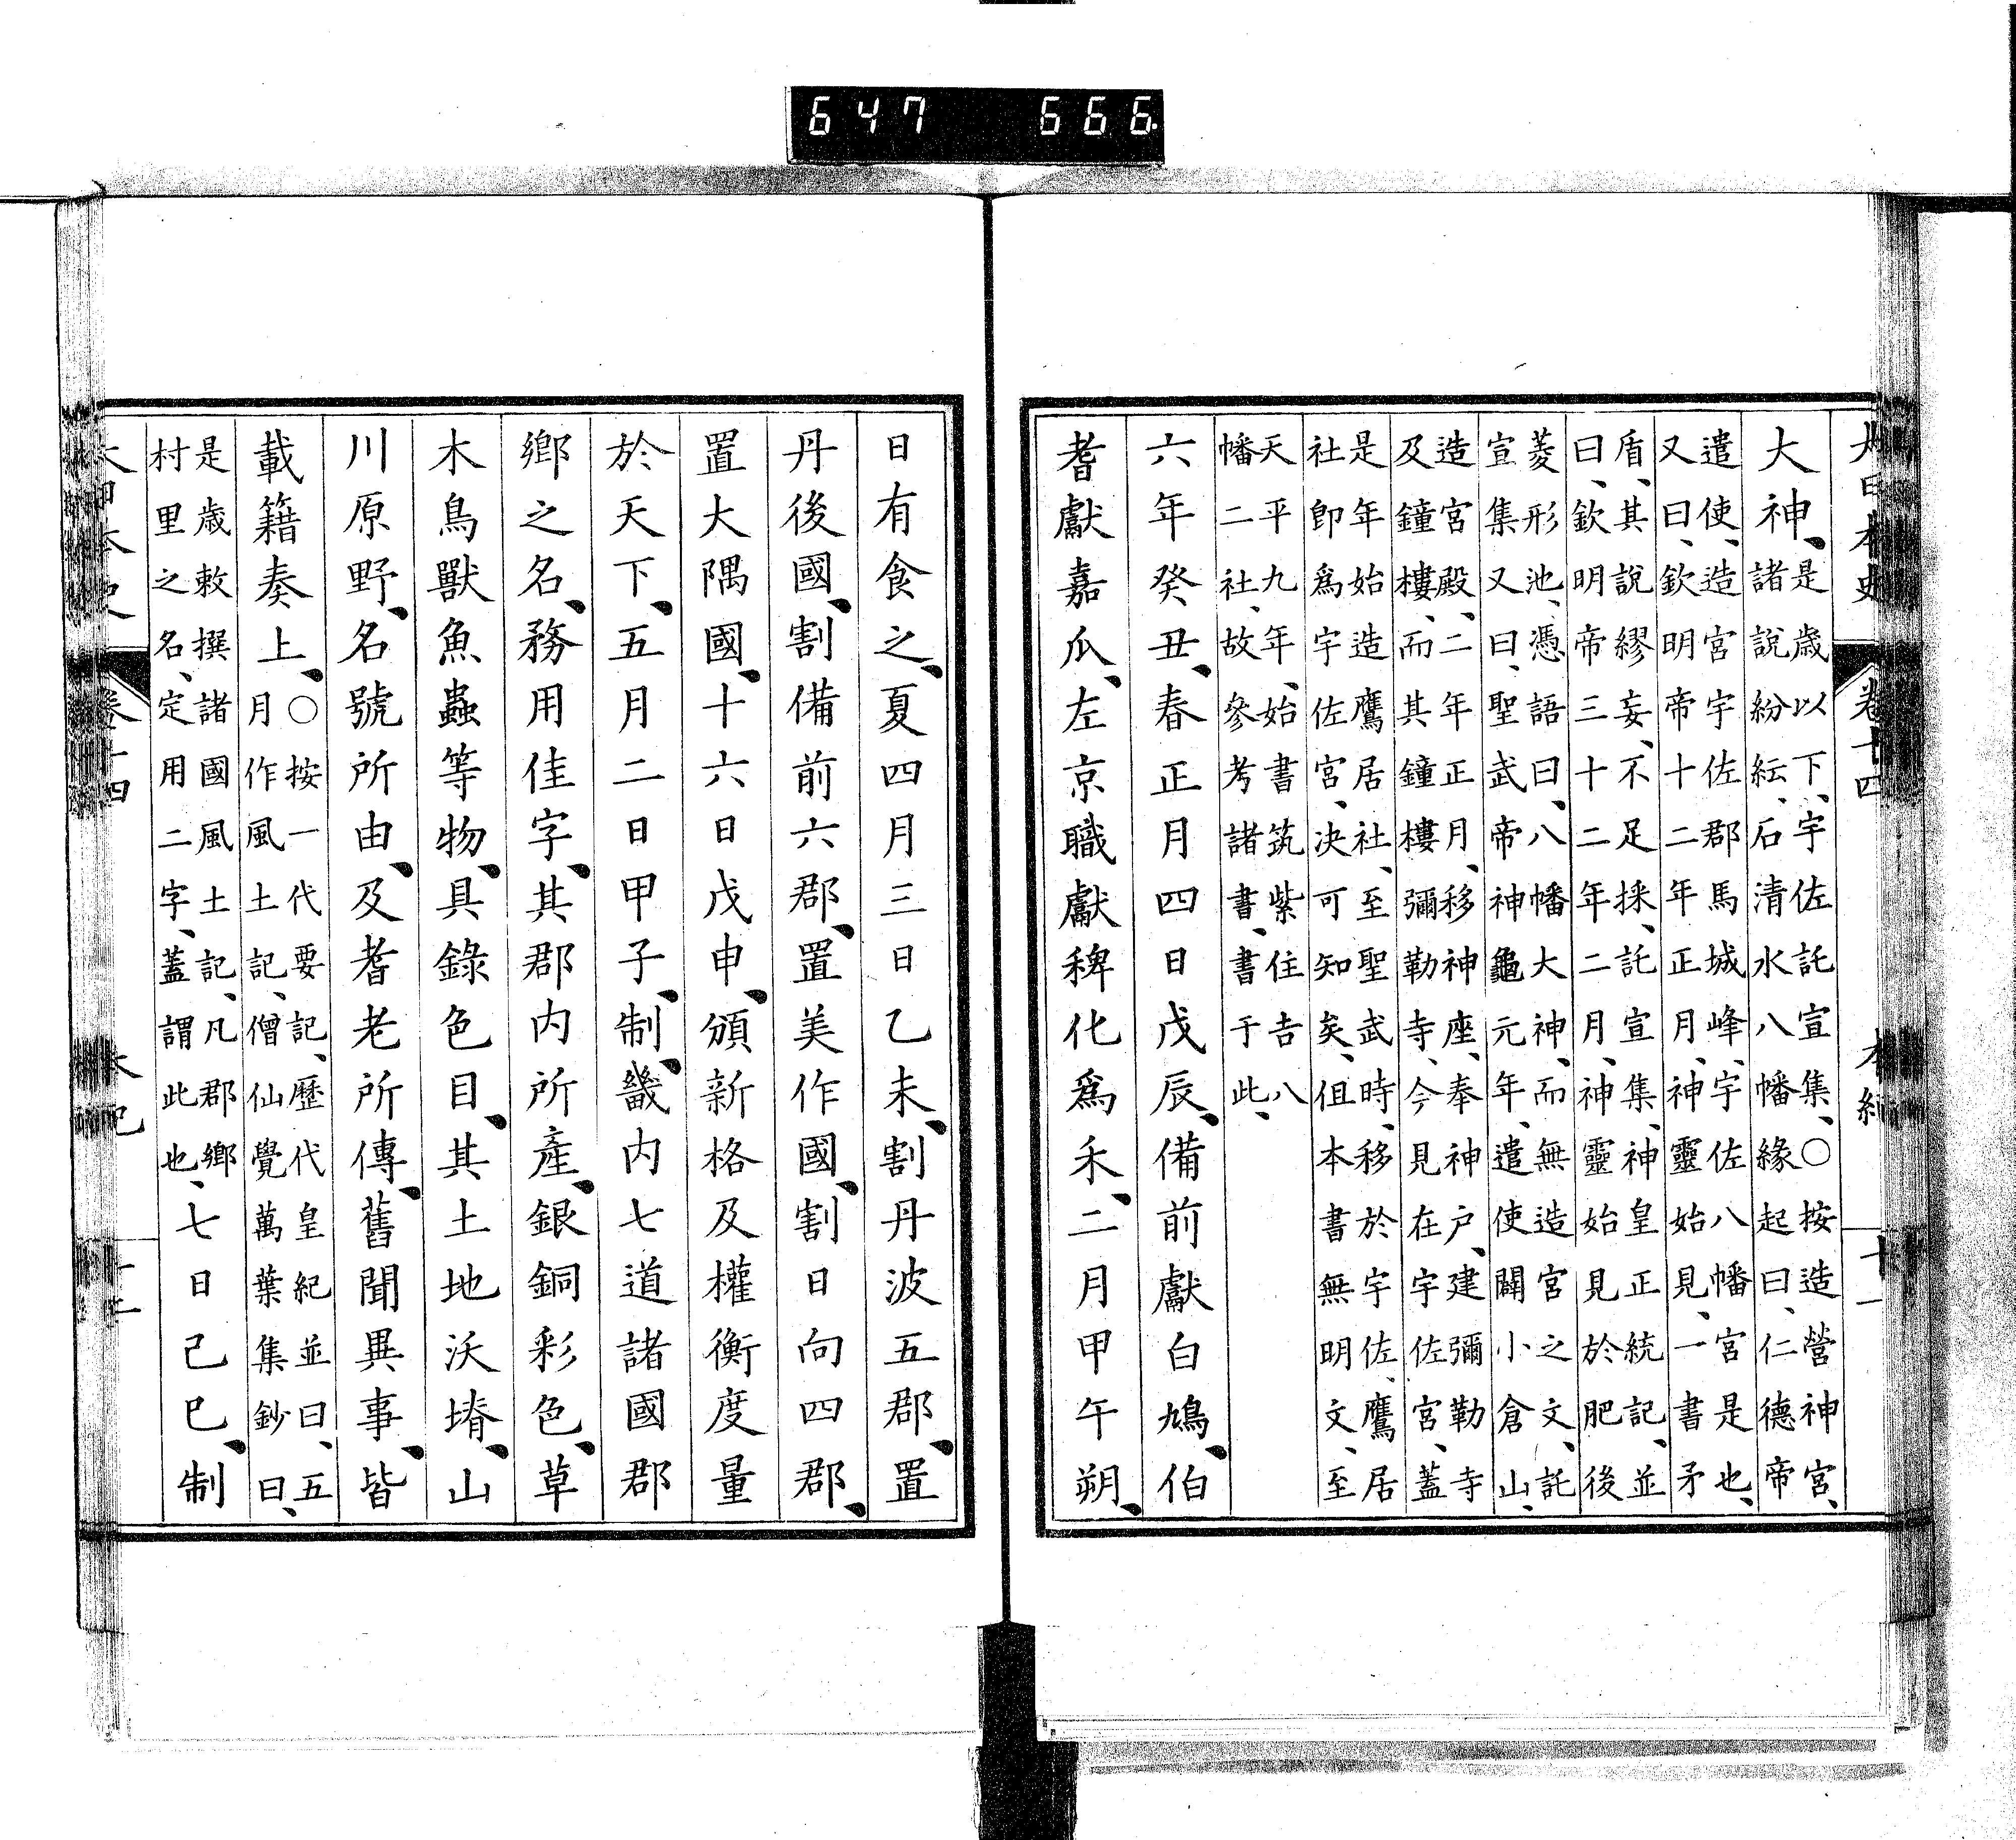 大日本史 卷十四 本紀 十一
大神、是歲以下、宇佐託宣集、○按造營神宮、
諸說紛紜、石清水八幡緣起曰、仁德帝
遣使、造宮宇佐郡馬城峰、宇佐八幡宮是也、
又曰、欽明帝十二年正月、神靈始見、一書矛
盾、其說繆妄、不足採、託宣集、神皇正統記、並
曰、欽明帝三十二年二月、神靈始見於肥後
菱形池、憑語曰、八幡大神、而無造宮之文、託
宣集又曰、聖武帝神龜元年、遣使闢小倉山、
造宮殿、二年正月、移神座、奉神戶、建彌勒寺
及鐘樓、而其鐘樓彌勒寺、今見在宇佐宮、蓋
是年始造鷹居社、至聖武時、移於宇佐、鷹居
社卽爲宇佐宮、決可知矣、但本書無明文、至
天平九年、始書筑紫住吉八
幡二社、故參考諸書、書于此、
六年癸丑、春正月四日戊辰、備前獻白鳩、伯
耆獻嘉瓜、左京職獻稗化爲禾、二月甲午朔、
日有食之、夏四月三日乙未、割丹波五郡、置
丹後國、割備前六郡、置美作國、割日向四郡、
置大隅國、十六日戊申、頒新格及權衡度量
於天下、五月二日甲子、制、畿内七道諸國郡
鄉之名、務用佳字、其郡内所產、銀銅彩色、草
木鳥獸魚蟲等物、具錄色目、其土地沃塉、山
川原野、名號所由、及耆老所傳、舊聞異事、皆
載籍奏上、○按一代要記、歷代皇紀並曰、五
月作風土記、僧仙覺萬葉集鈔曰、
是歲敕撰諸國風土記、凡郡鄉
村里之名、定用二字、蓋謂此也、七日己巳、制
大日本史 卷十四 本紀